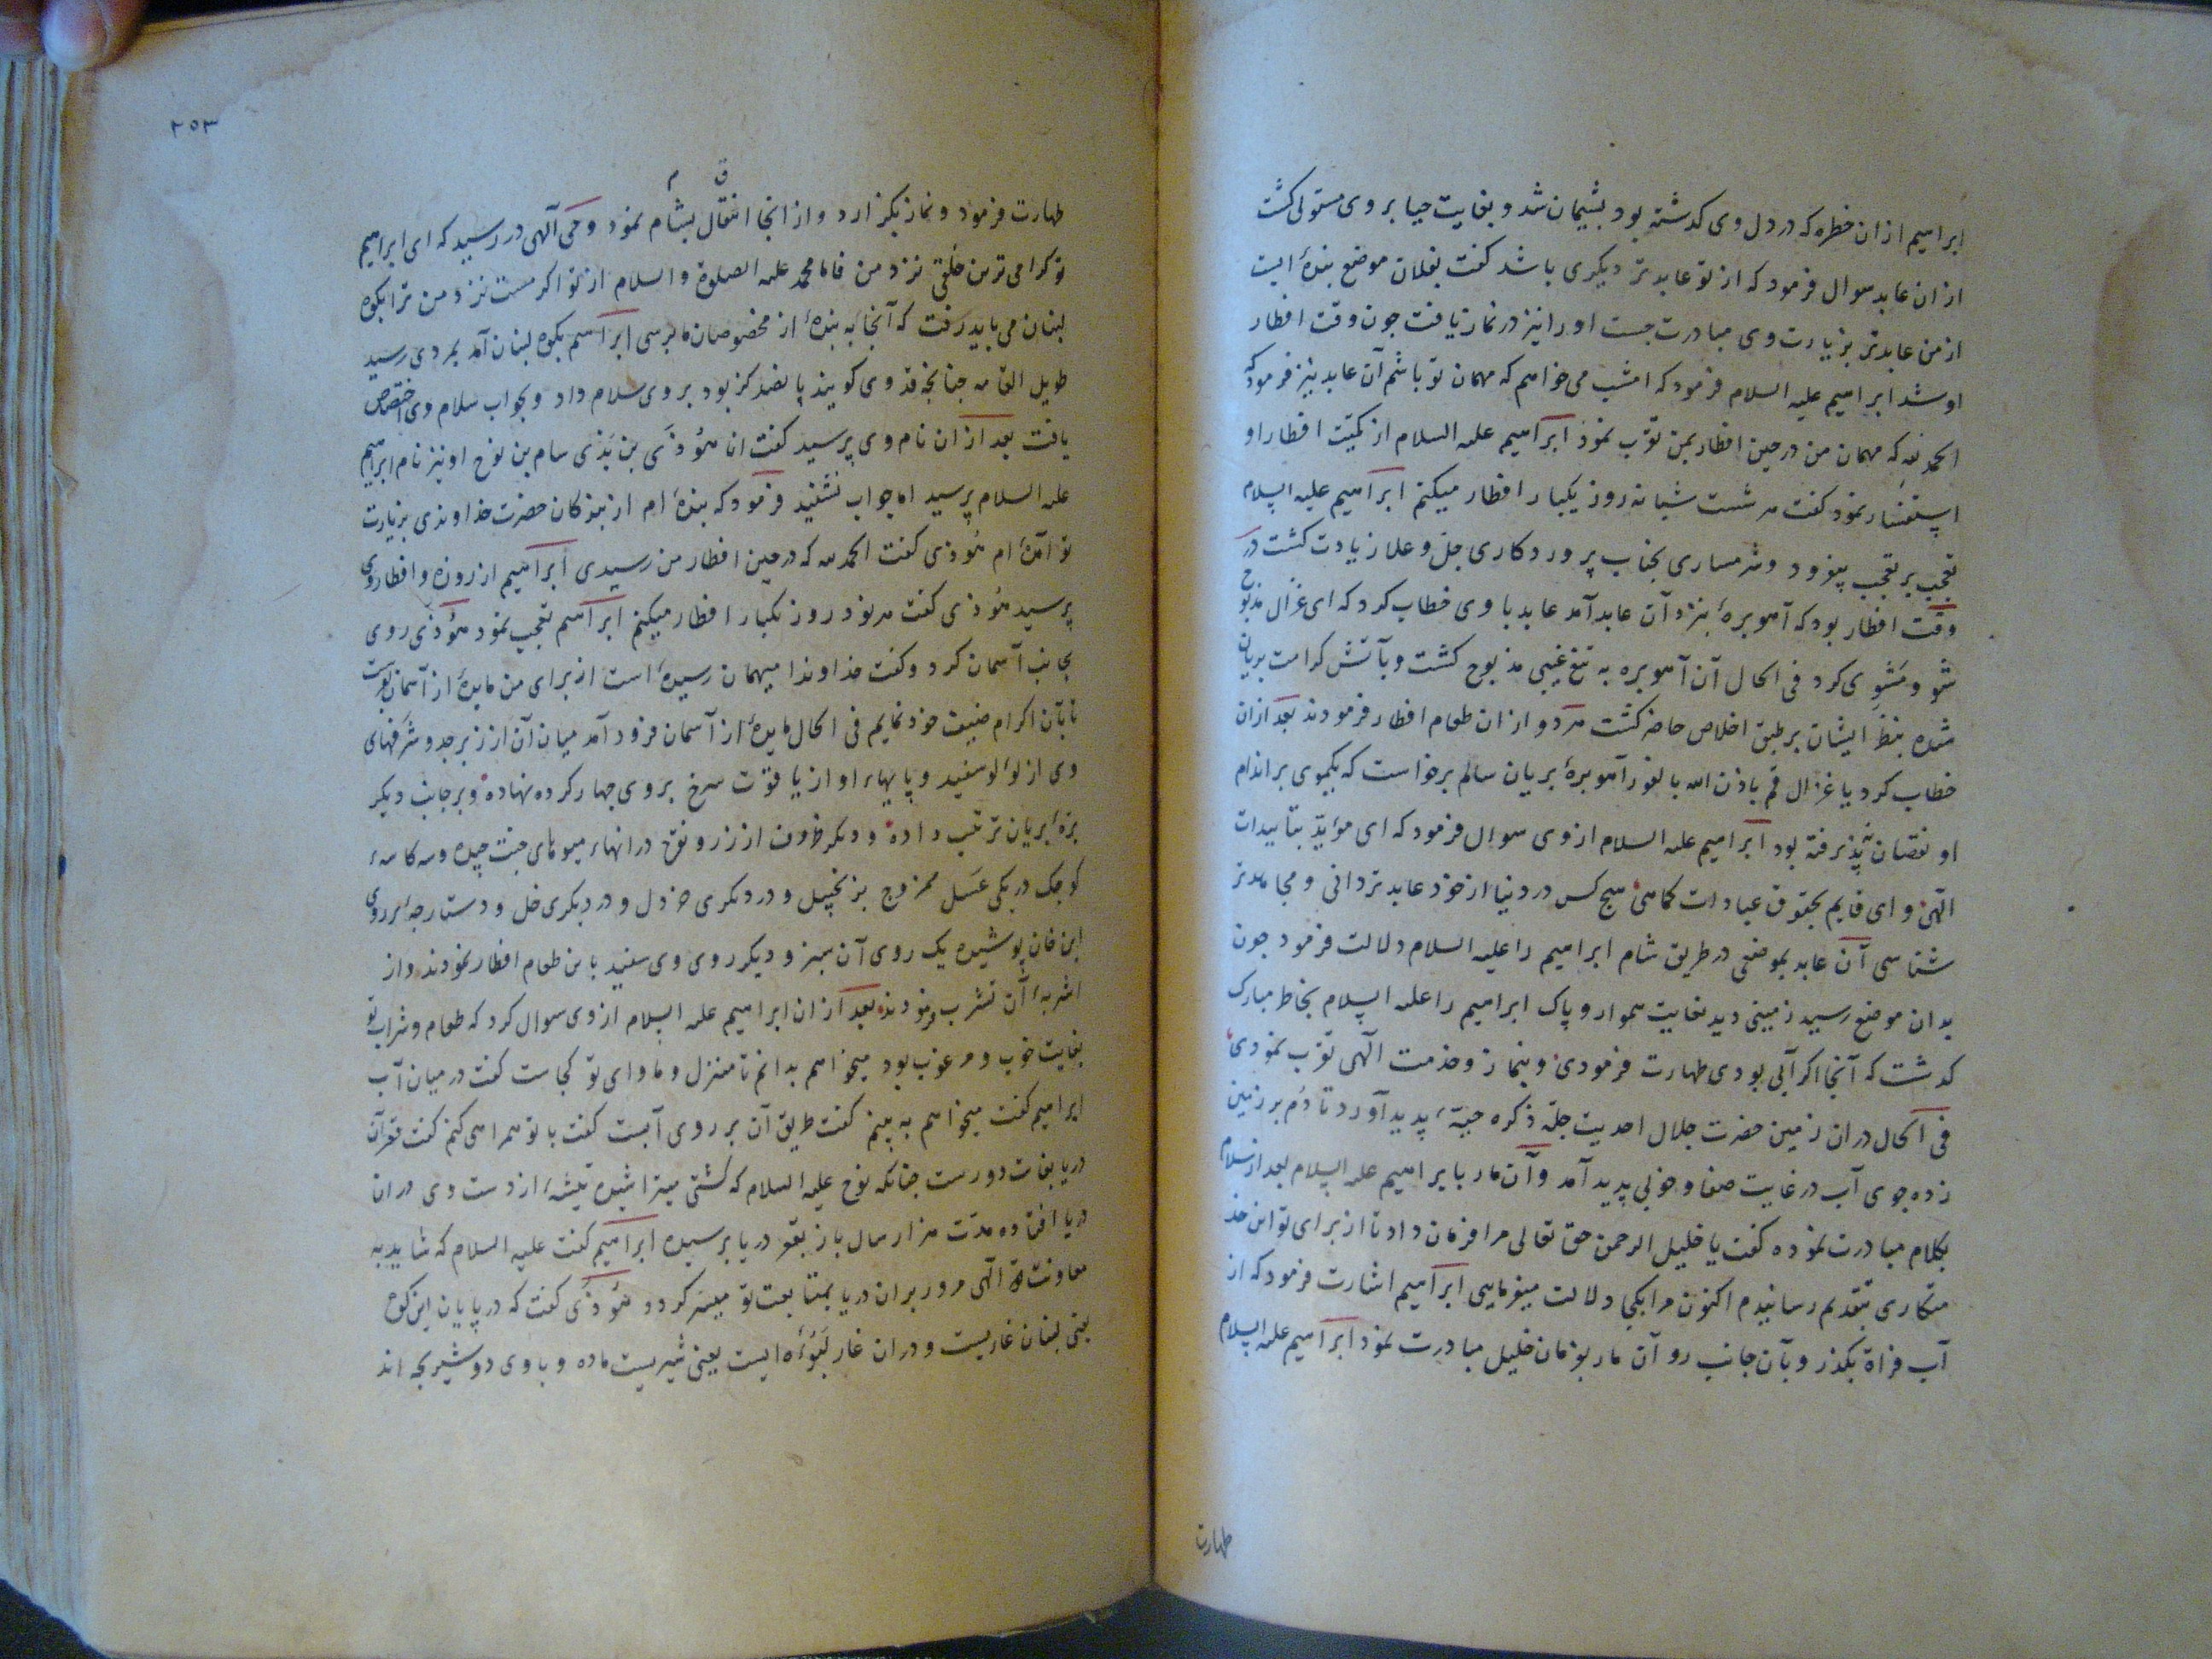 ابراهیم ازان خطره که در دل وی کدشته بود پشیمان شد و بغایت حیا بروی مستولی کشت
ازان عابد سوال فرمود که از تو عابد تر دیکری باشد کفت بفلان موضع بندهٔ ایست
از من عابدتر بزیارت وی مبادرت جست او را نیز در نماز یافت جون وقت افطار
او شد ابراهیم علیه السلام فرمود که امشب می خواهم که مهمان تو باشم آن عابد نیز فرمود که
الحمد لله که مهمان من در حین افطار بمن تقرب نمود ابراهیم علیه السلام از کمیّت افطار او
استفسار نمود کفت هر شست شبانه روز یکبار افطار میکنم ابراهیم علیه السلام
تعجب بر تعجب بیفزود و شرمساری بجناب پروردکاری جلّ و علا زیادت کشت در
وقت افطار بود که آهو برهٔ بنزد آن عابد آمد عابد باوی خطاب کرد که ای غزال مذبوح
شو و مشوی کرد فی الحال آن آهو بره به تیغ غیبی مذبوح کشت و بآتش کرامت بریان
شده بنظر ایشان بر طبق اخلاص حاضر کشت هر دو ازان طعام افطار فرمودند بعد ازان
خطاب کرد یا غزال قم باذن الله بالفور آهو برهٔ بریان سالم برخواست که یکموی بر اندام
او نقصان نپذیرفته بود ابراهیم علیه السلام از وی سوال فرمود که ای مؤید بتأییدات
الهی و ای قایم بحقوق عبادات کماهی هیج کس در دنیا از خود عابد تر دانی و مجاهدتر
شناسی آن عابد بموضعی در طریق شام ابراهیم را علیه السلام دلالت فرمود جون
بدان موضع رسید زمینی دید بغایت هموار و پاک ابراهیم را علیه السلام بخاطر مبارک
کدشت که آنجا اکر آبی بودی طهارت فرمودی و بنماز و خدمت الهی تقرب نمودی
فی الحال دران زمین حضرت جلال احدیت جلّ ذکره حیّهٔ پدید آورد تا دُم بر زمین
زده جوی آب در غایت صفا و خوبی پدید آمد و آن مار با ابراهیم علیه السلام بعد از سلام
بکلام مبادرت نموده کفت یا خلیل الرحمن حق تعالی مرا فرمان داد تا از برای تو این خد
متکاری بتقدیم رسانیدم اکنون مرا بکجا دلالت میفرمایی ابراهیم اشارت فرمود که از
آب فراة بکذر و بآن جانب رو آن مار بفرمان خلیل مبادرت نمود ابراهیم علیه السلام
طهارت
۲۵۳
ق م
طهارت فرمود و نماز بکزارد و از انجا انتقال بشام نمود وحی آلهی در رسید که ای ابراهیم
تو کرامی ترین خلقی نزد من فاما محمد علیه الصلوة والسلام از تو اکرمست نزد من ترا بکوه
لبنان می باید رفت که آنجا به بندهٔ از مخصوصان ما برسی ابراهیم بکوه لبنان آمد بمردی رسید
طویل القامه جنانجه قد وی کویند پانصد کز بود بروی سلام داد و بجواب سلام وی اختصاص
یافت بعد ازان نام وی پرسید کفت انا هُوذَی بن بَذی سام بن نوح او نیز نام ابراهیم
علیه السلام پرسید اما جواب نشنید فرمود که بندهٔ ام از بندکان حضرت خداوندی بزیارت
تو آمدهٔ ام هُوذی کفت الحمد لله که در حین افطار من رسیدی ابراهیم از روزه و افطار وی
پرسید هُوذی کفت هر نود روز یکبار افطار میکنم ابراهیم تعجب نمود هُوذَی روی
بجانب آسمان کرد و کفت خداوندا میهمان رسیدهٔ است از برای من مایدهٔ از آسمان بفرست
تا بآن اکرام ضیف خود نمایم فی الحال مایدهٔ از آسمان فرود آمد میان آن از زبرجد و شرفهای
وی از لؤلؤ سفید و پایهاء او از یاقوت سرخ بروی جهار کرده نهاده و بر جانب دیکر
برهٔ بریان ترتیب داده و دیکر ظروف از زر و نقره در انهاء میوهای جنت جیده و سه کاسهء
کوجک در یکی عسَل ممزوج بزنجبیل و در دیکری خردل و در دیکری خل و دستارجهٔ بر روی
این خان پوشیده یک روی آن سبز و دیکر روی وی سفید باین طعام افطار نمودند و از
اشربهٔ آن تشرب فرمودند بعد ازان ابراهیم علیه السلام از وی سوال کرد که طعام و شراب تو
بغایت خوب و مرغوب بود میخواهم بدانم تا منزل و ماوای تو کجاست کفت در میان آب
ابراهیم کفت میخواهم به بینم کفت طریق آن بر روی آبست کفت با تو همراهی کنم کفت قعر آن
دریا بغایت دورست جنانکه نوح علیه السلام که کشتی میتراشیده تیشهٔ از دست وی دران
دریا افتاده مدت هزار سال باز بقعر دریا نرسیده ابراهیم کفت علیه السلام که شاید به
معاونت الهی مرور بران دریا بمتابعت تو میسر کردد هُوذُی کفت که در پایان این کوه
یعنی لبنان غاریست و دران غار لَبُؤَه ایست یعنی شیریست ماده و باوی دو شیر بجه اند